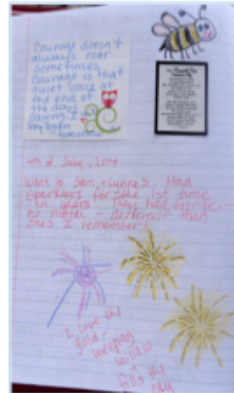 Courage doesn't
always roar.
sometimes
courage is that
quiet voice at
the end of
the day
saying, I will
try again
tomorrow
4th of July, 2014
Went to Sam + Lynne's. Had
sparklers for the 1st time
in years. They had orange,
no metal - different than
ones I remember!
I love the
gold
weeping
willow
fills the
sky